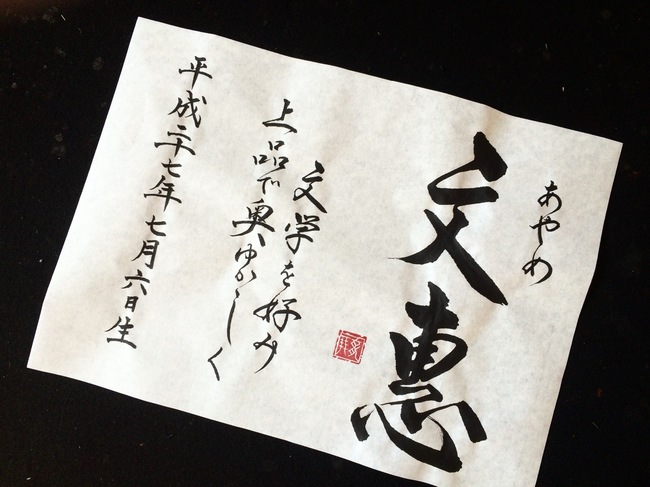 あやめ
文恵
文学を好み
上品で奥ゆかしく
平成二十七年七月六日生